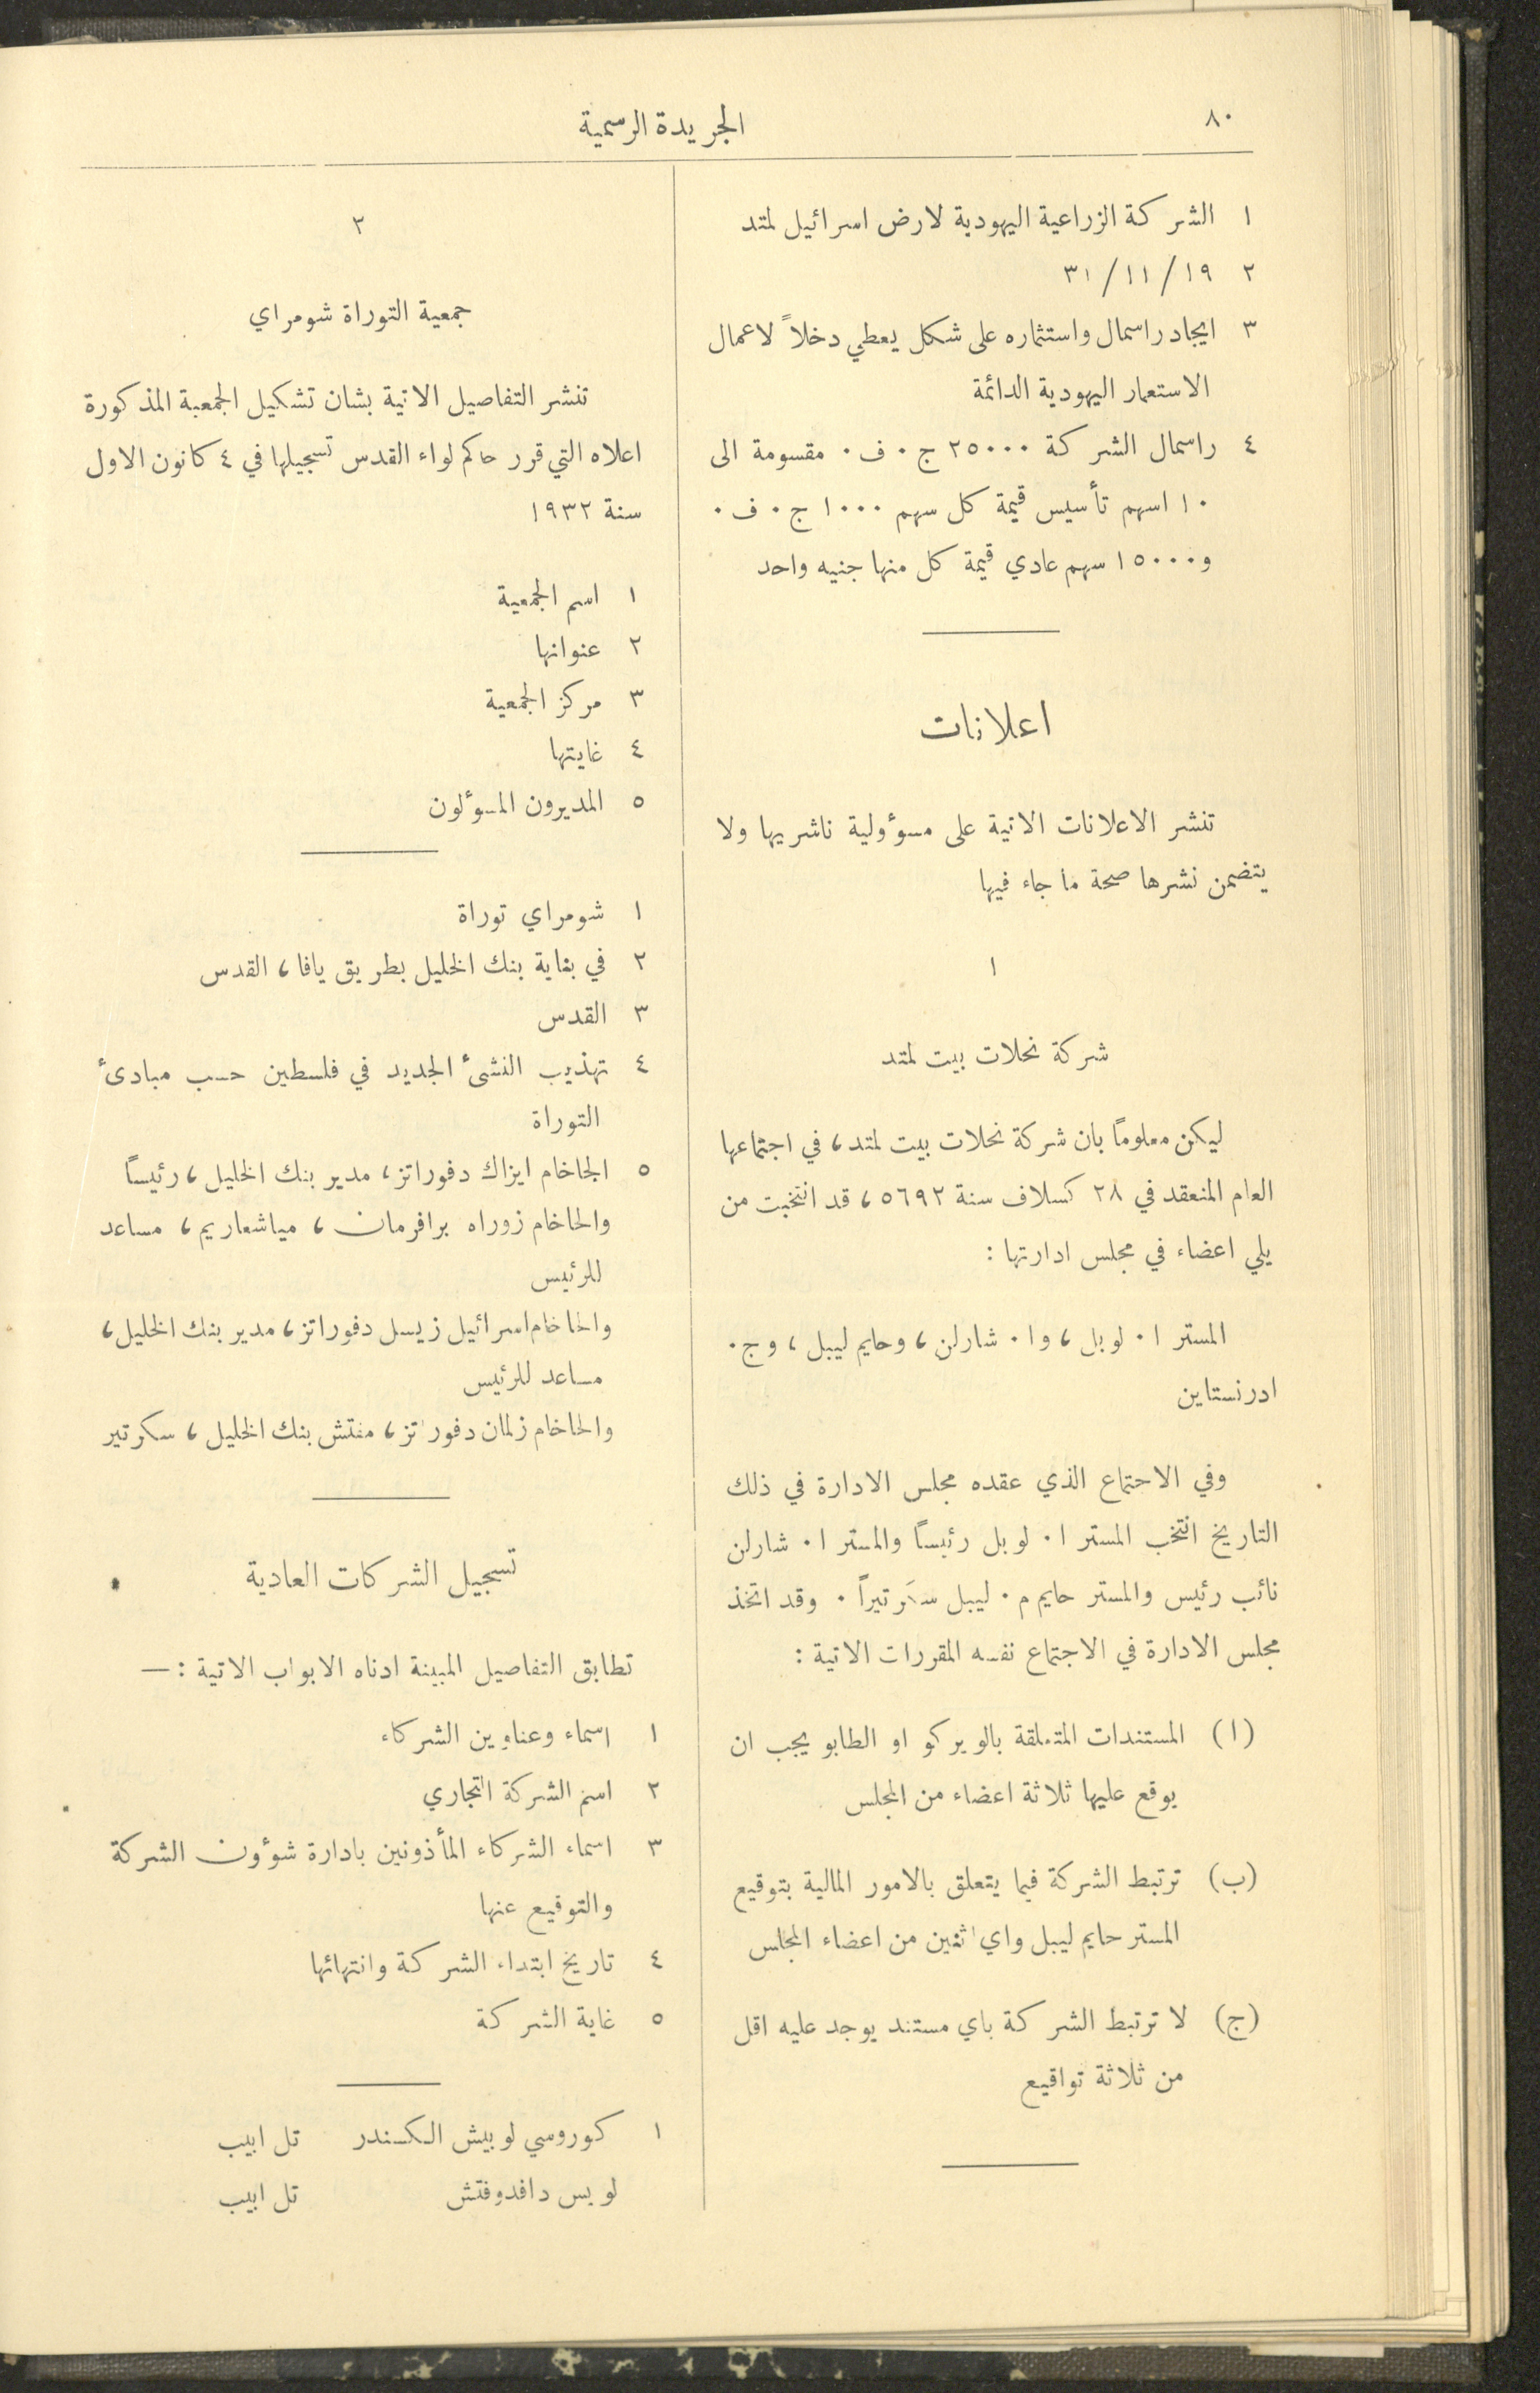 ٨٠
الجريدة الرسمية
١ الشركة الزراعية اليهودية لارض اسرائيل لمتد
٢ ١٩/١١/٣١
٣ ايجاد راسمال واستثماره على شكل يعطي دخلاً لاعمال
الاستعمار اليهودية الدائمة
٤ راسمال الشركة ٢٥٠٠٠ ج٠ ف٠ مقسومة الى
١٠ اسهم تأسيس قيمة كل سهم ١٠٠٠ ج٠ ف٠
و١٥٠٠٠ سهم عادي قيمة كل منها جنيه واحد
اعلانات
تنشر الاعلانات الاتية على مسوؤلية ناشريها ولا
يتضمن نشرها صحة ما جاء فيها
١
شركة نحلات بيت لمتد
ليكن معلوماً بان شركة نحلات بيت لمتد، في اجتماعها
العام المنعقد في ٢٨ كسلاف سنة ٥٦٩٢، قد انتخبت من
يلي اعضاء في مجلس ادارتها :
المستر ا٠ لوبل، وا٠ شارلن، وحايم ليبل، وج٠
ادرنستاين
وفي الاجتماع الذي عقده مجلس الادارة في ذلك
التاريخ انتخب المستر ا٠ لوبل رئيساً والمستر ا٠ شارلن
نائب رئيس والمستر حايم م٠ ليبل سكرتيراً٠ وقد اتخذ
مجلس الادارة في الاجتماع نفسه المقررات الاتية :
(ا) المستندات المتعلقة بالويركو او الطابو يجب ان
يوقع عليها ثلاثة اعضاء من المجلس
(ب) ترتبط الشركة فيما يتعلق بالامور المالية بتوقيع
المستر حايم ليبل واي اثنين من اعضاء المجلس
(ج) لا ترتبط الشركة باي مستند يوجد عليه اقل
من ثلاثة تواقيع
٢
جمعية التوراة شومراي
تنشر التفاصيل الاتية بشان تشكيل الجمعية المذكورة
اعلاه التي قرر حاكم لواء القدس تسجيلها في ٤ كانون الاول
سنة ١٩٣٢
١ اسم الجمعية
٢ عنوانها
٣ مركز الجمعية
٤ غايتها
٥ المديرون المسوؤلون
١ شومراي توراة
٢ في بناية بنك الخليل بطريق يافا، القدس
٣ القدس
٤ تهذيب النشئ الجديد في فلسطين حسب مبادئ
التوراة
٥ الحاخام ايزاك دفوراتز، مدير بنك الخليل، رئيساً
والحاخام زوراه برافرمان، مياشعاريم، مساعد
للرئيس
والحاخام اسرائيل زيسل دفوراتز، مدير بنك الخليل،
مساعد للرئيس
والحاخام زلمان دفوراتز، مفتش بنك الخليل، سكرتير
تسجيل الشركات العادية
تطابق التفاصيل المبينة ادناه الابواب الاتية :—
١ اسماء وعناوين الشركاء
٢ اسم الشركة التجاري
٣ اسماء الشركاء المأذونين بادارة شوؤون الشركة
والتوقيع عنها
٤ تاريخ ابتداء الشركة وانتهائها
٥ غاية الشركة
١ كوروسي لوبيش الكسندر تل ابيب
لويس دافدوفتش تل ابيب